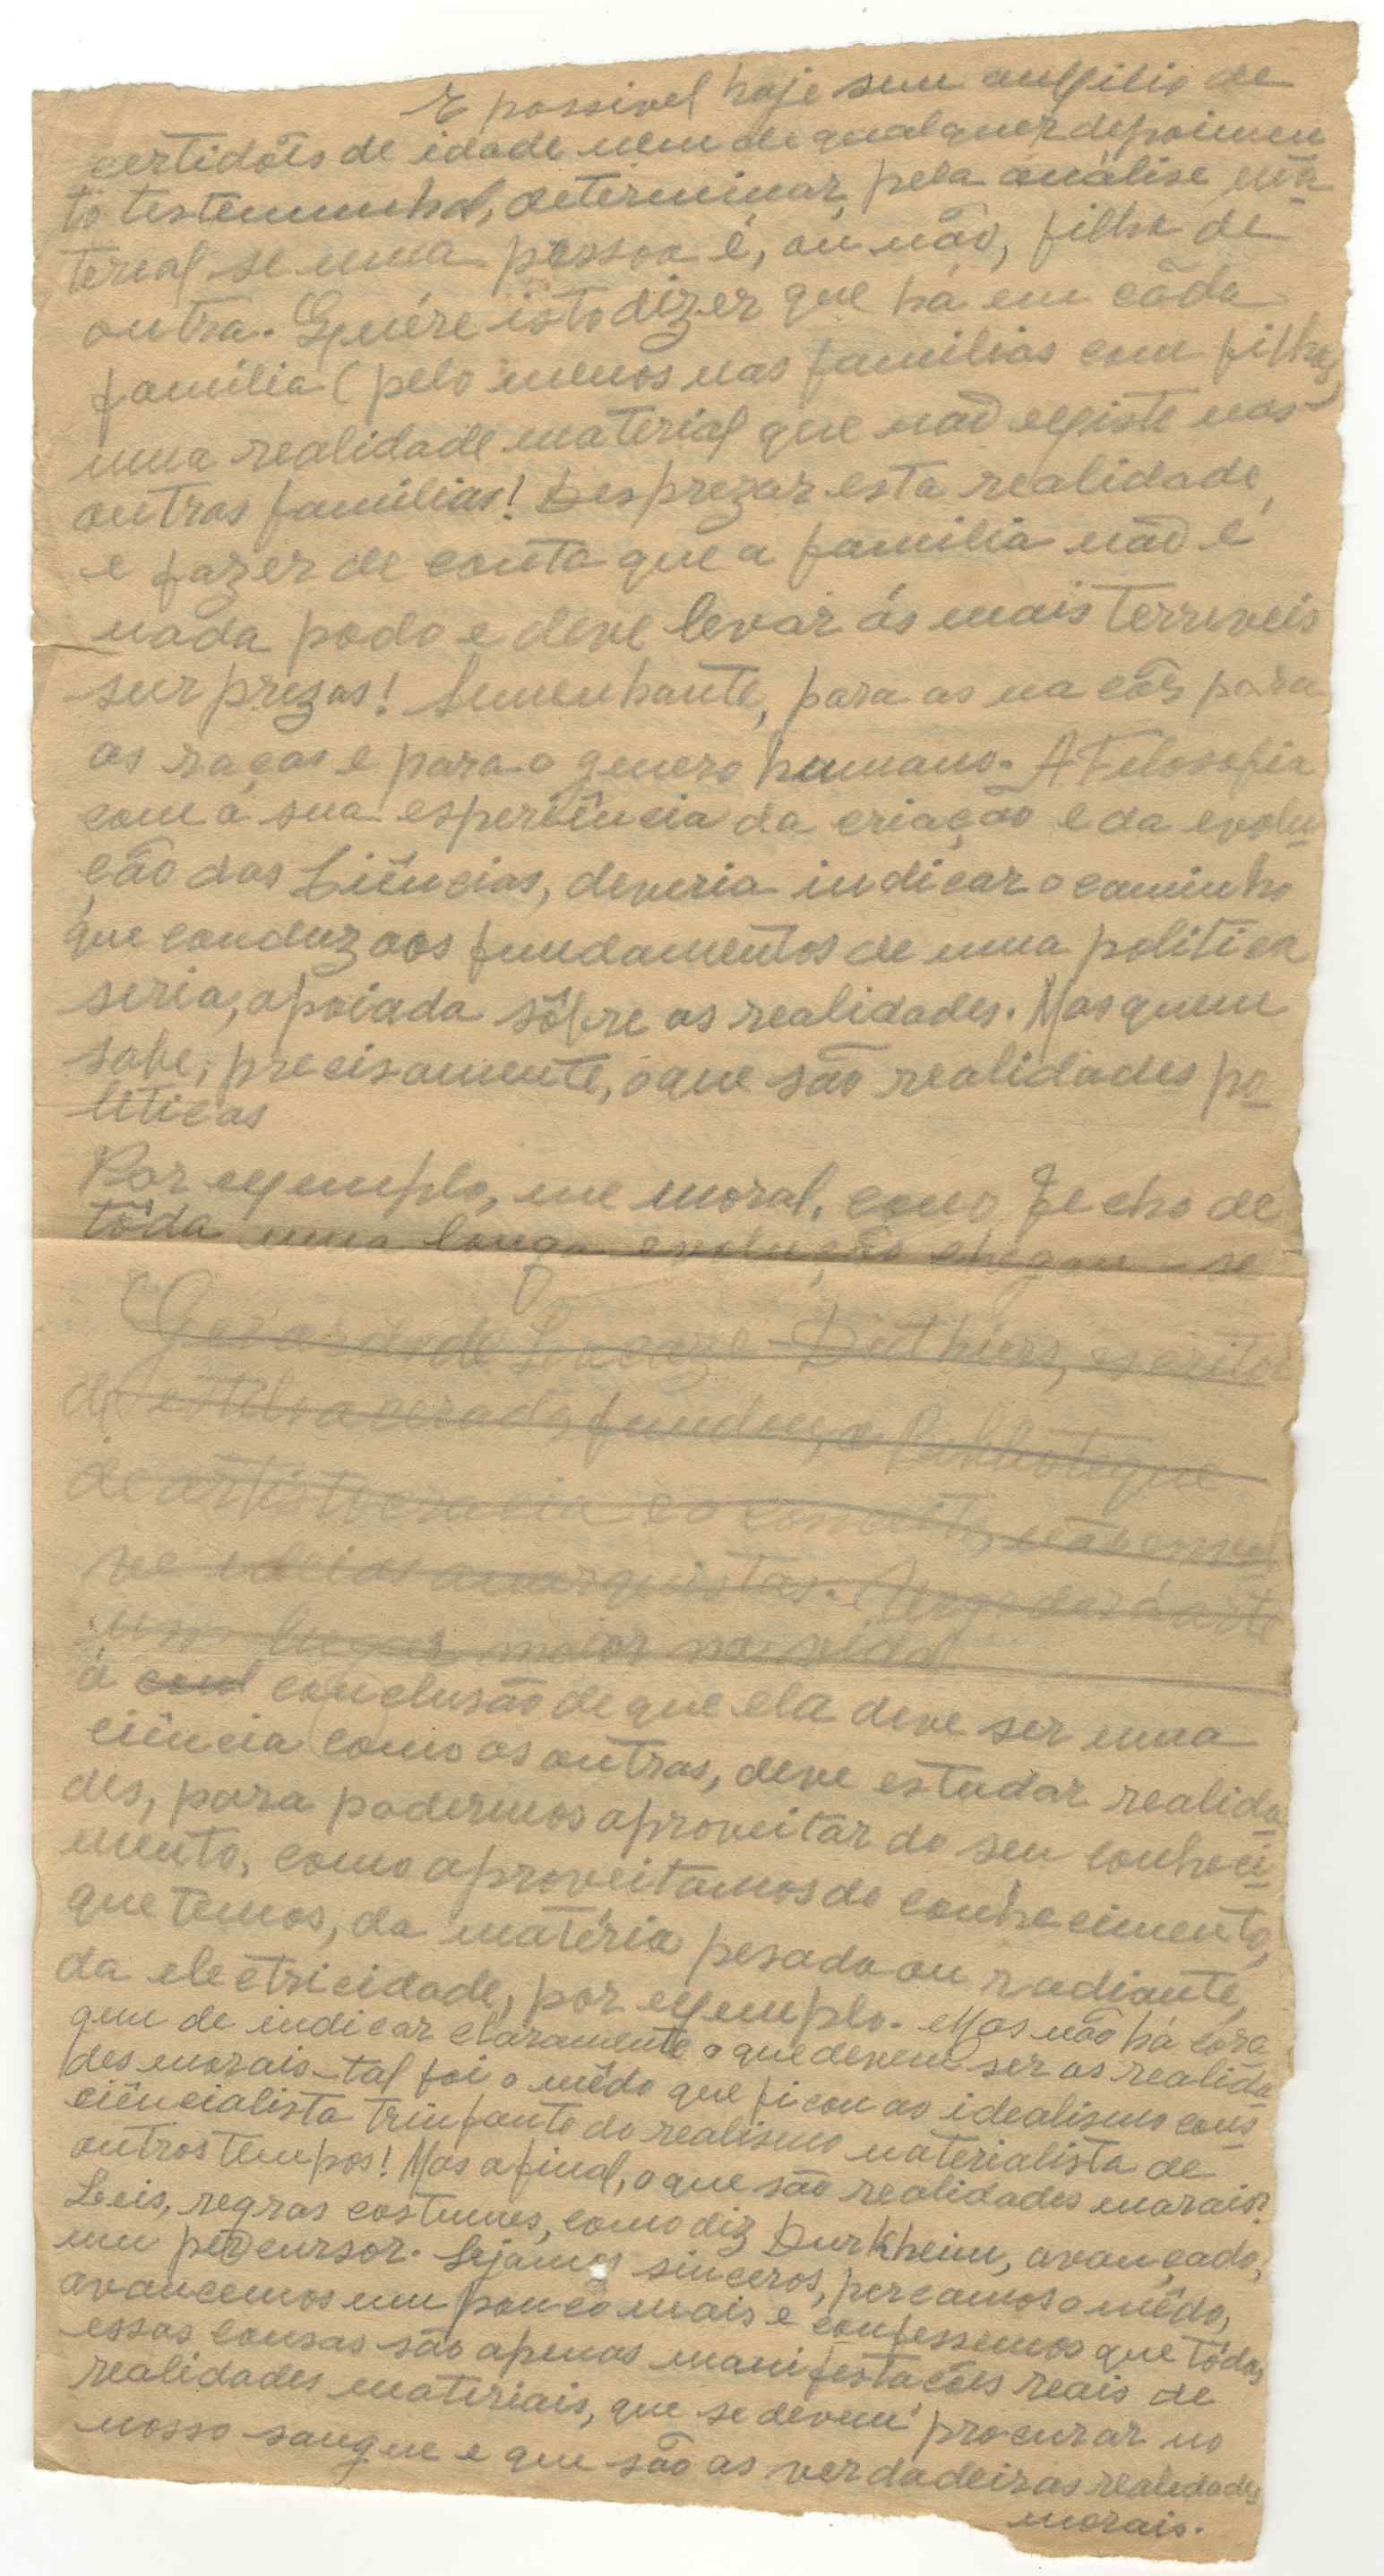 É possivel hoje sem auxilio de
certidões de idade nem de qualquer depoimen
to testemunhal, determinar pela análise ma
terial se uma pessoa é, ou não, filha de
outra. Quére isto dizer que há em cada
familia (pelo menos nas familias com filhos)
uma realidade material que não existe nas
outras familias! Desprezar esta realidade,
e fazer de conta que a familia não é
nada pode e deve levar ás mais terriveis
surprezas! Semenhante, para as nações para
as raças e para o genero humano. A Filosofia
com a sua esperiência da criação e da evolu
ção das Ciências, deveria indicar o caminho
que conduz aos fundamentos de uma politica
seria, apoiada sôbre as realidades. Mas quem
sabe, precisamente, o que são realidades po
liticas
Por exemplo, me moral, como fecho de
tôda uma longa evolução chegou-se
Gerardo de Lacaze-Duthiers, escritor
de estilo acerado, fundou a Bibliotéque
de artistocracia e o
ideias anarquistas. Urge dar á arte
um lugar maior na vida
á conl conclusão de que ela deve ser uma
ciência como as outras, deve estudar realida
des, para podermos aproveitar do seu conheci
mento, como aproveitamos do conhecimento,
que temos, da matéria pesada ou radiante,
da electricidade, por exemplo. Mas não há cora
gem de indicar claramente o que devem ser as realida
des morais-tal foi o mêdo que ficou ao idealismo cons
ciêncialista triufante do realismo materialista de
outros tempos! Mas afinal, o que são realidades morais?
Leis, regras costumes, como diz Durkheim, avançado,
um percursor. Sejamos sinceros, percamos o mêdo,
avancemos um pouco mais e confessemos que tôdas
essas cousas são apenas manifestações reais de
realidades materiais, que se devem procurar no
nosso sangue e que são as verdadeiras realidades
morais.